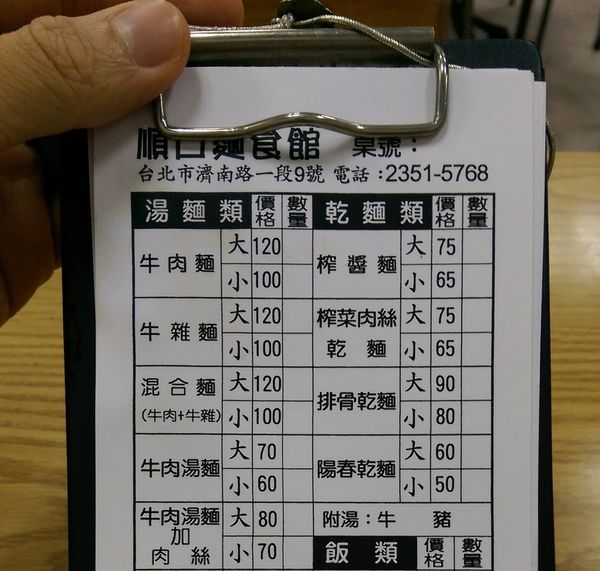 順口麵食館 桌號：
台北市濟南路一段9號 電話：2351-5768
湯麵類 價格 數量 乾麵類 價格 數量
牛肉麵 大 120 榨醬麵 大 75
小 100 小 65
牛雜麵 大 120 榨菜肉絲乾麵 大 75
小 100 小 65
混合麵 (牛肉+牛雜) 大 120 排骨乾麵 大 90
小 100 小 80
牛肉湯麵 大 70 陽春乾麵 大 60
小 60 小 50
牛肉湯麵加肉絲 大 80 附湯：牛 豬
小 70 飯類 價格 數量